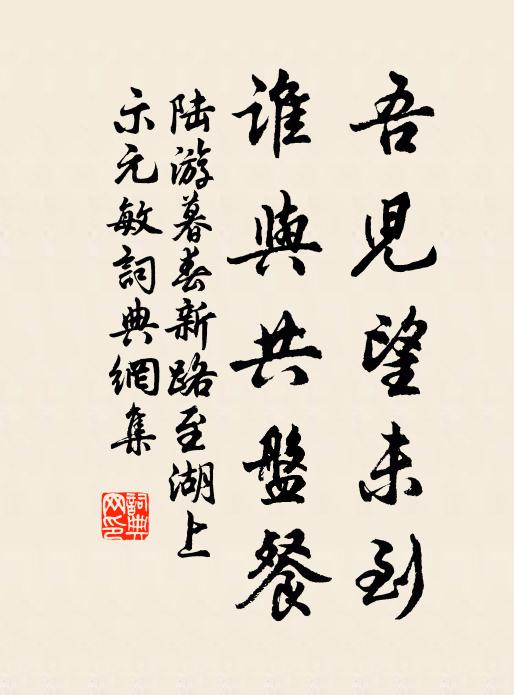 吾兒望未到
誰與共盤餐
陸游暮春新路至湖上
示元敏詞典網集
詞典
网印